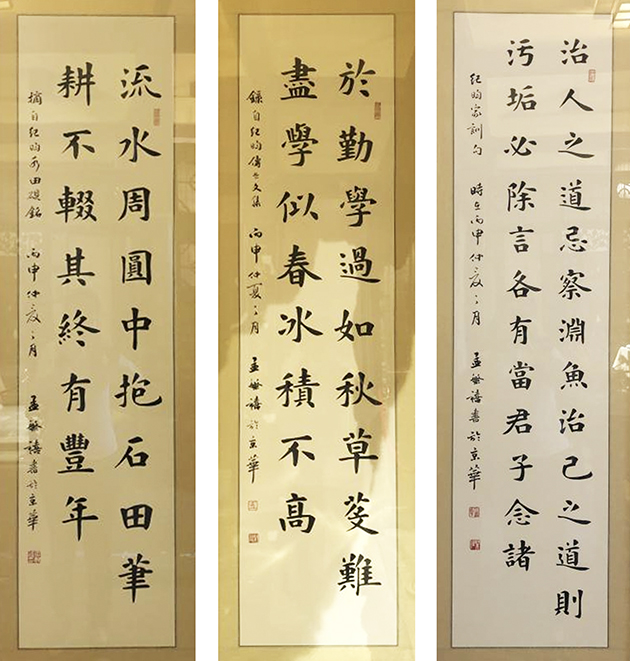 流水周圓中抱石田筆
耕不輟其終有豐年
摘自紀昀田硯銘 丙申仲夏之月 孟繁禧書於京華
於勤學過如秋草芟難
盡學似春冰積不高
錄自紀昀傳世文集 丙申仲夏之月 孟繁禧書於京華
治人之道忌察淵魚治己之道則
污垢必除言各有當君子念諸
紀昀家訓句 時在丙申仲夏之月 孟繁禧書於京華